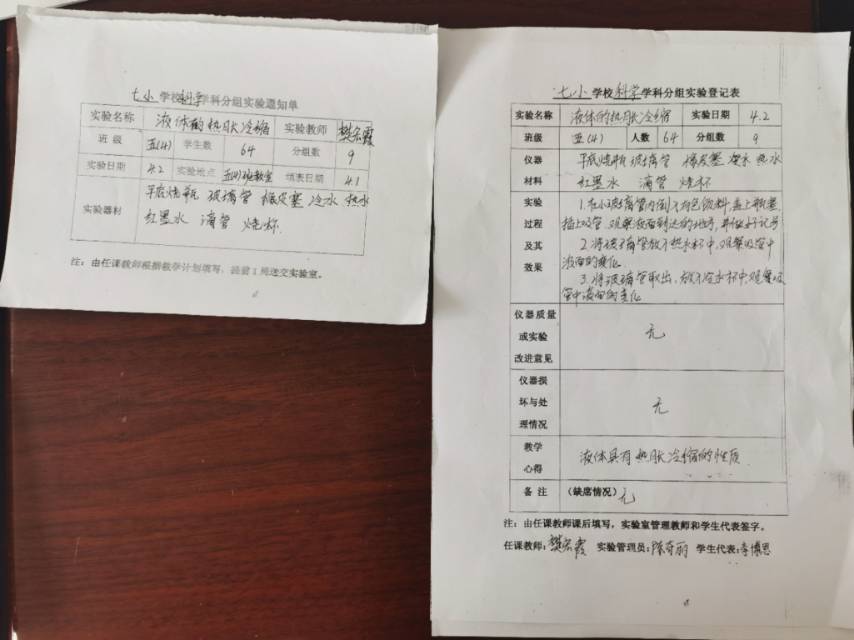 七小 学校科学学科分组实验通知单
实验名称 液体的热胀冷缩 实验教师 樊宏霞
班级 五(4) 学生数 64 分组数 9
实验日期 4.2 实验地点 五(4)班教室 填表日期 4.1
实验器材 平底烧瓶 玻璃管 橡皮塞 冷水 热水
红墨水 滴管 烧杯
注：由任课教师根据教学计划填写，提前1周送交实验室。
七小 学校科学学科分组实验登记表
实验名称 液体的热胀冷缩 实验日期 4.2
班级 五(4) 人数 64 分组数 9
仪器 平底烧瓶 玻璃管 橡皮塞 冷水 热水
材料 红墨水 滴管 烧杯
实验 1.在小玻璃管内倒入有色饮料，盖上瓶塞
过程 插上吸管，观察液面到达的地方，并做好记号
及其 2.将玻璃管放入热水杯中，观察吸管中
效果 液面的变化
3.将玻璃管取出，放入冷水杯中，观察吸
管中液面的变化
仪器质量
或实验 无
改进意见
仪器损
坏与处 无
理情况
教学
心得 液体具有热胀冷缩的性质
备注 （缺席情况）无
注：由任课教师课后填写，实验室管理教师和学生代表签字。
任课教师：樊宏霞 实验管理员：陈奇丽 学生代表：李博恩